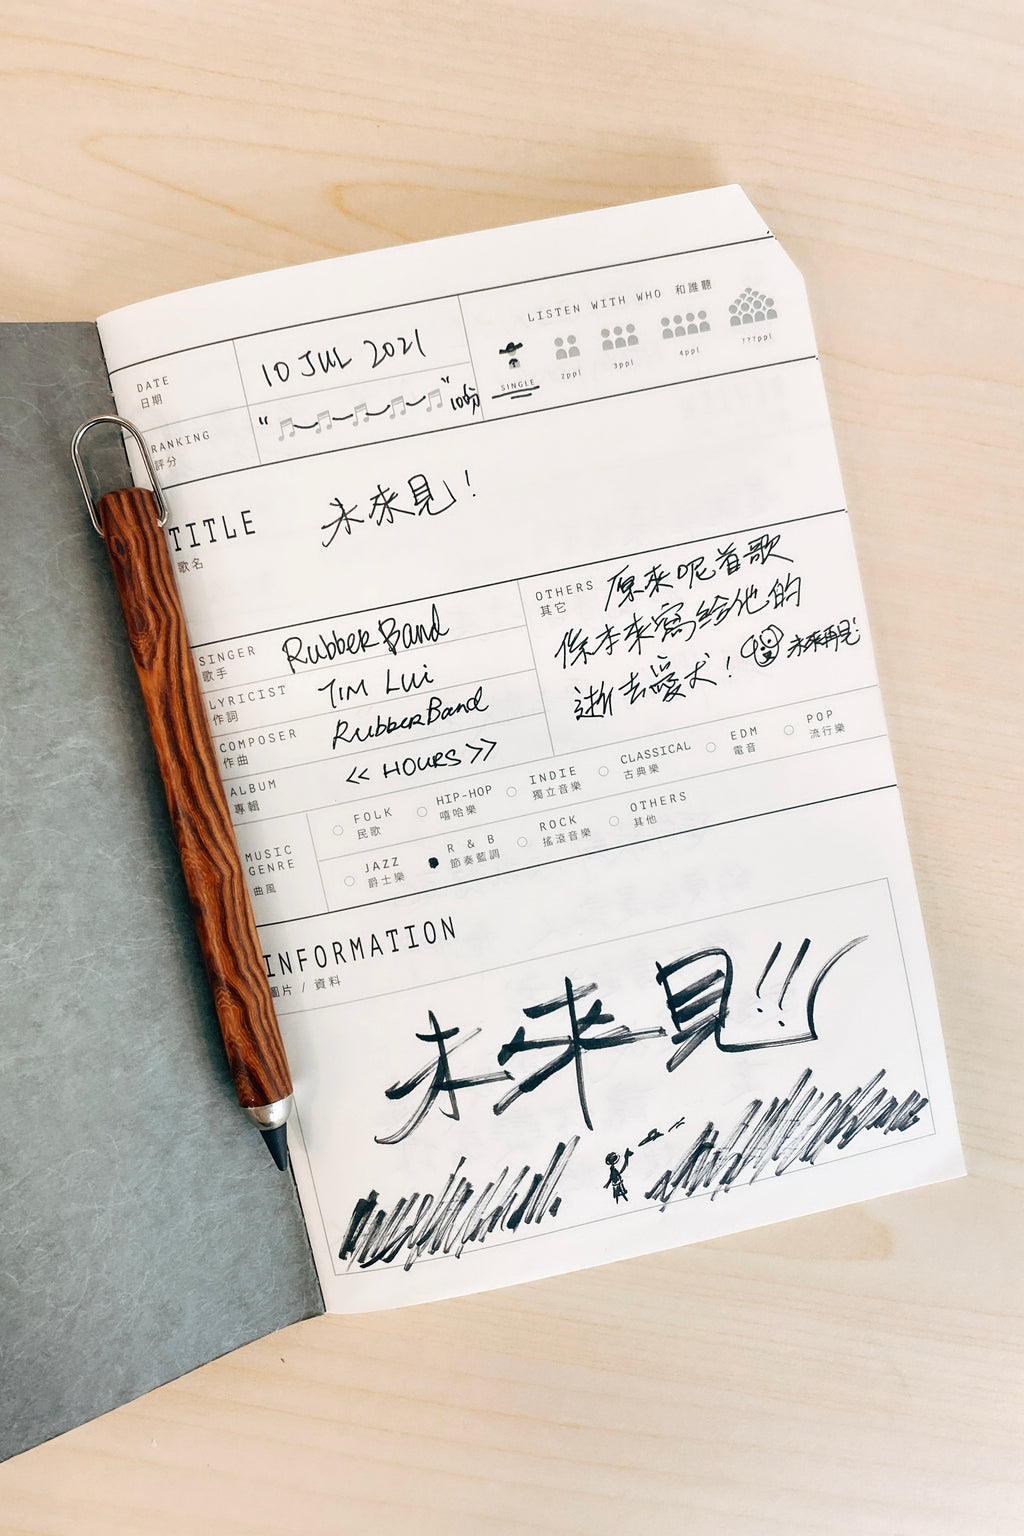 DATE
日期
10 JUL 2021
RANKING
評分
" " 10分
LISTEN WITH WHO 和誰聽
SINGLE
2ppl
3ppl
4ppl
???ppl
TITLE
歌名
未來見!
SINGER
歌手
RubberBand
LYRICIST
作詞
TIM LUi
COMPOSER
作曲
RubberBand
ALBUM
專輯
<< HOURS >>
OTHERS
其它
原來呢首歌
係本來寫給他的
逝去愛犬!
未來再見!
MUSIC
GENRE
曲風
FOLK
民歌
HIP-HOP
嘻哈樂
INDIE
獨立音樂
CLASSICAL
古典樂
EDM
電音
POP
流行樂
JAZZ
爵士樂
R & B
節奏藍調
ROCK
搖滾音樂
OTHERS
其他
INFORMATION
圖片 / 資料
未來見!!